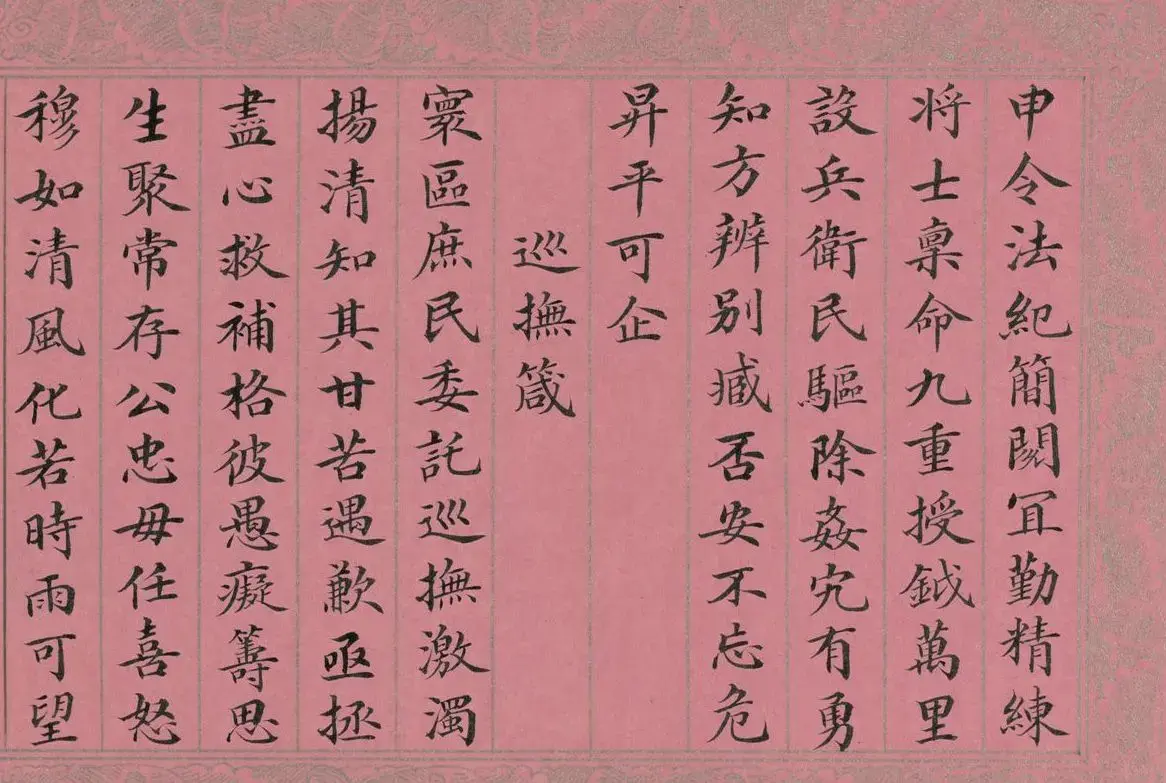 申令法紀簡閱冝勤精練
将士稟命九重授鉞萬里
設兵衛民驅除姦宄有勇
知方辨别臧否安不忘危
昇平可企
巡撫箴
寰區庶民委託巡撫激濁
揚清知其甘苦遇歉亟拯
盡心救補格彼愚癡籌思
生聚常存公忠毋任喜怒
穆如清風化若時雨可望